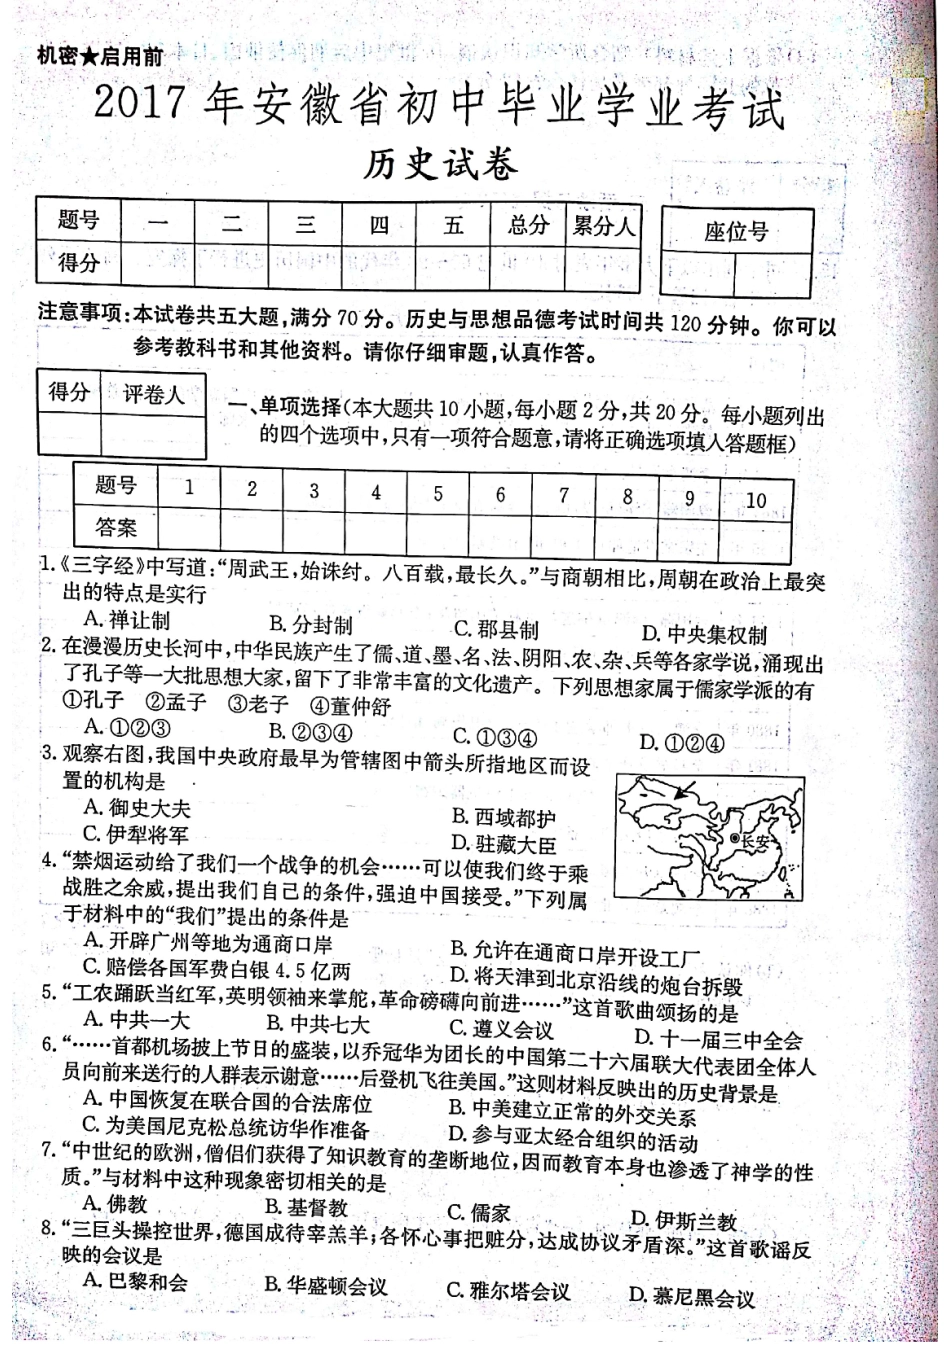 机密★启用前
2017 年安徽省初中毕业学业考试
历史试卷
题号 一 二 三 四 五 总分 累分人
得分
座位号
注意事项:本试卷共五大题,满分 70 分。历史与思想品德考试时间共 120 分钟。你可以
参考教科书和其他资料。请你仔细审题,认真作答。
得分 评卷人
一、单项选择(本大题共 10 小题,每小题 2 分,共 20 分。每小题列出
的四个选项中,只有一项符合题意,请将正确选项填入答题框)
题号 1 2 3 4 5 6 7 8 9 10
答案
1.《三字经》中写道:“周武王,始诛纣。八百载,最长久。”与商朝相比,周朝在政治上最突
出的特点是实行
A. 禅让制 B. 分封制 C. 郡县制 D. 中央集权制
2. 在漫漫历史长河中,中华民族产生了儒、道、墨、名、法、阴阳、农、杂、兵等各家学说,涌现出
了孔子等一大批思想大家,留下了非常丰富的文化遗产。下列思想家属于儒家学派的有
①孔子 ②孟子 ③老子 ④董仲舒
A. ①②③ B. ②③④ C. ①③④ D. ①②④
3. 观察右图,我国中央政府最早为管辖图中箭头所指地区而设
置的机构是
A. 御史大夫 B. 西域都护
C. 伊犁将军 D. 驻藏大臣
长安
4. “禁烟运动给了我们一个战争的机会……可以使我们终于乘
战胜之余威,提出我们自己的条件,强迫中国接受。”下列属
于材料中的“我们”提出的条件是
A. 开辟广州等地为通商口岸 B. 允许在通商口岸开设工厂
C. 赔偿各国军费白银 4. 5 亿两 D. 将天津到北京沿线的炮台拆毁
5. “工农踊跃当红军,英明领袖来掌舵,革命磅礴向前进……”这首歌曲颂扬的是
A. 中共一大 B. 中共七大 C. 遵义会议 D. 十一届三中全会
6. “……首都机场披上节日的盛装,以乔冠华为团长的中国第二十六届联大代表团全体人
员向前来送行的人群表示谢意……后登机飞往美国。”这则材料反映出的历史背景是
A. 中国恢复在联合国的合法席位 B. 中美建立正常的外交关系
C. 为美国尼克松总统访华作准备 D. 参与亚太经合组织的活动
7. “中世纪的欧洲,僧侣们获得了知识教育的垄断地位,因而教育本身也渗透了神学的性
质。”与材料中这种现象密切相关的是
A. 佛教 B. 基督教 C. 儒家 D. 伊斯兰教
8. “三巨头操控世界,德国成待宰羔羊;各怀心事把赃分,达成协议矛盾深。”这首歌谣反
映的会议是
A. 巴黎和会 B. 华盛顿会议 C. 雅尔塔会议 D. 慕尼黑会议